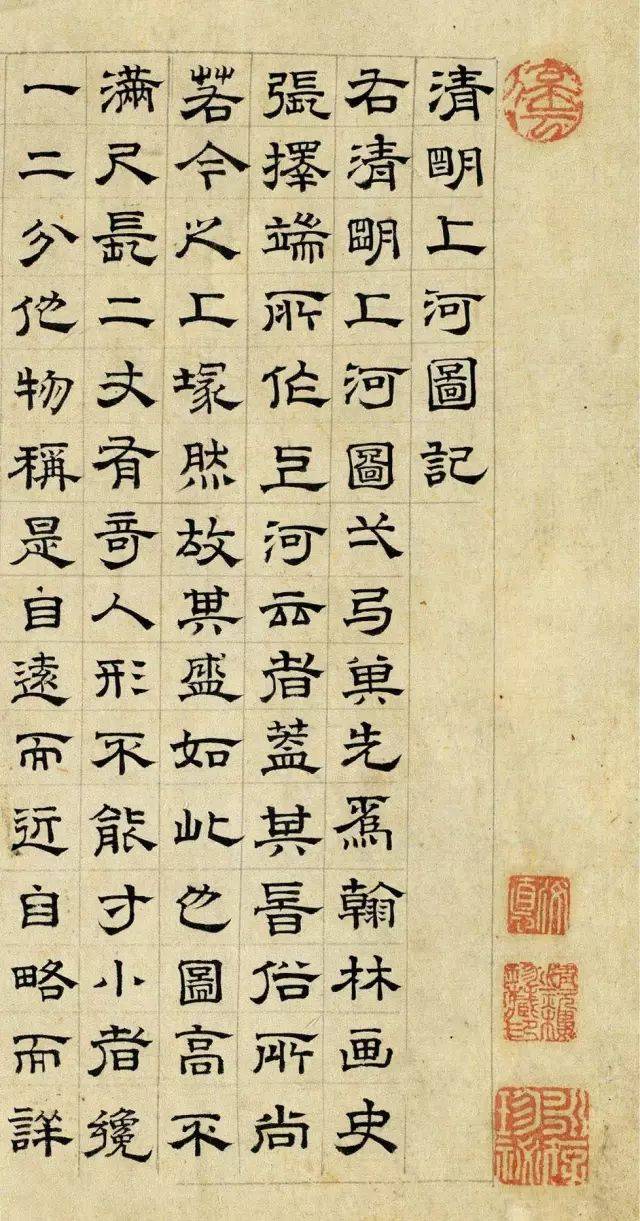 清朙上河圖記
右清朙上河圖弌弓先爲翰林画史
張擇端所作河云者葢其旹俗所尚
若今之上塚然故其盛如此也圖高不
滿尺長二丈有奇人形不能寸小者纔
一二分他物稱是自遠而近自略而詳